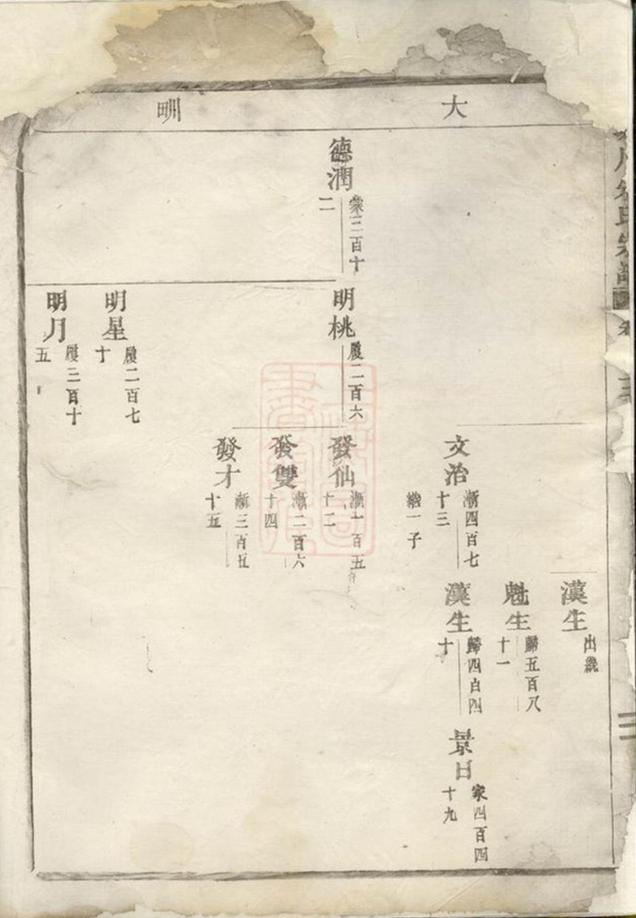 大
明
德潤
象三百十
二
明桃
履二百六
明星
履二百七
十
明月
履三百十
五
文治
漸四百七
十三
繼一子
發仙
漸一百五
十二
發雙
漸二百六
十四
發才
漸三百五
十五
漢生
出繼
魁生
歸五百八
十一
漢生
歸四百四
十
景日
家四百四
十九
氏宗譜
卷